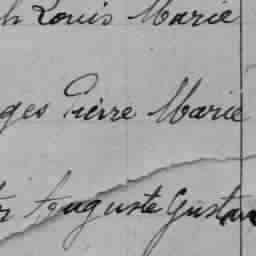 h Louis Marie
ges Pierre Marie
Auguste Gustave